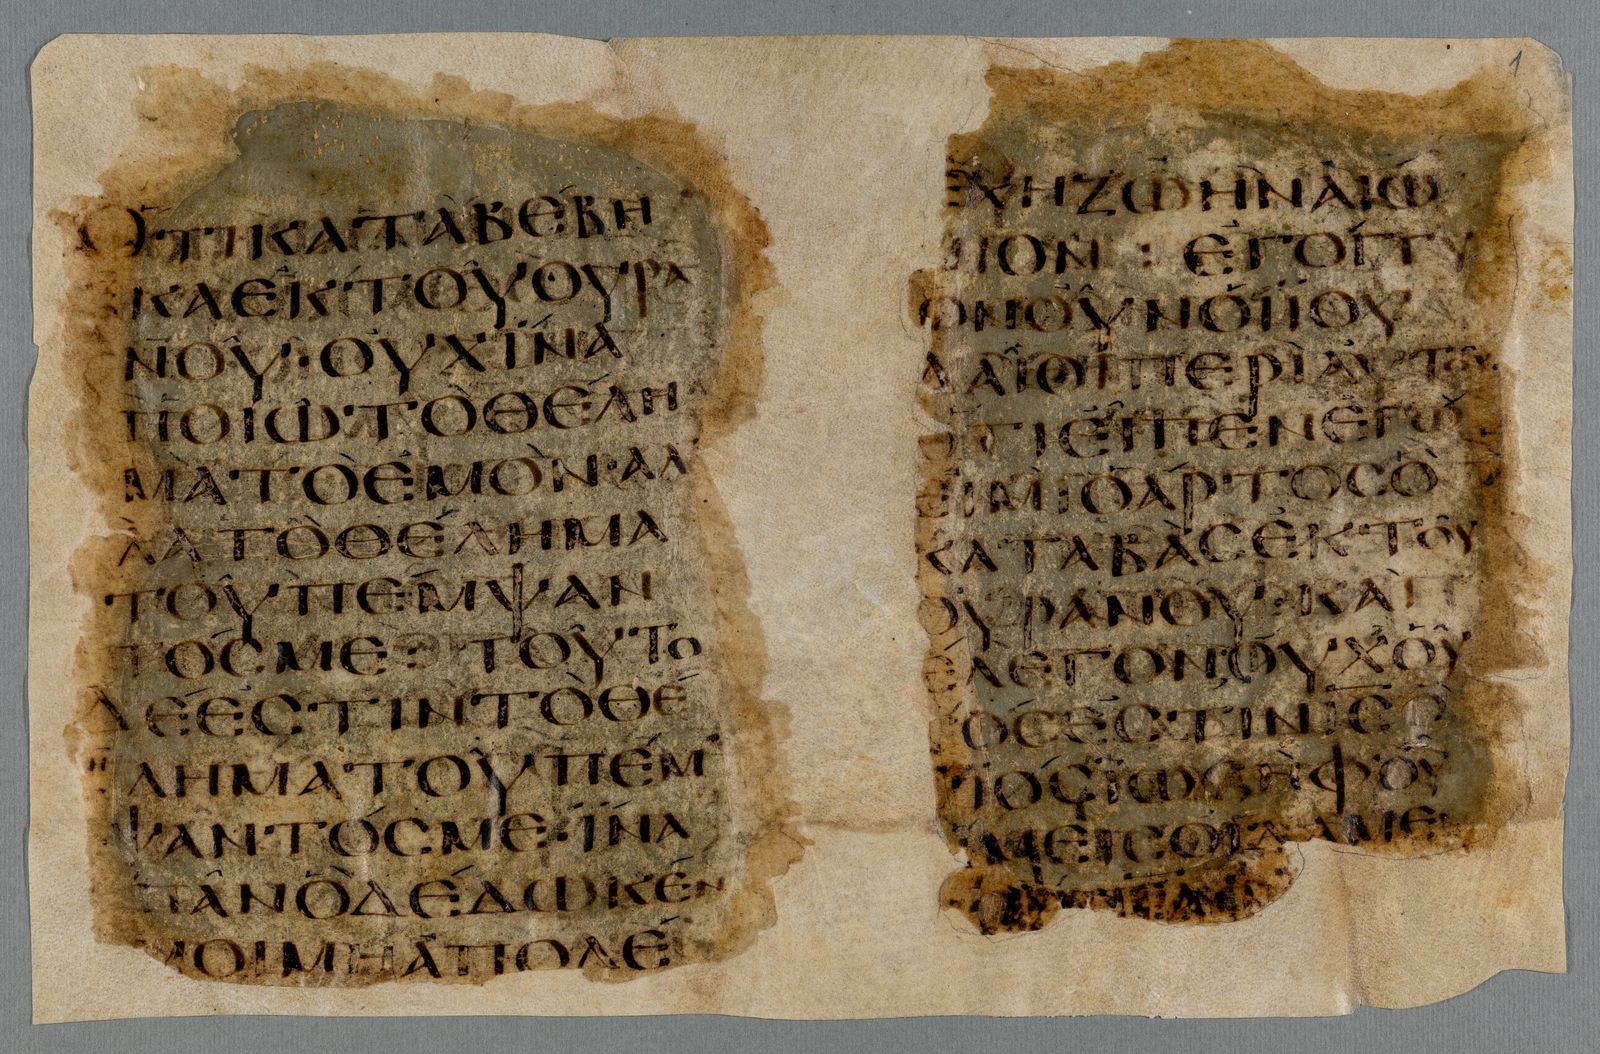 ΟΤΙΚΑΤΑΒΕΒΗ
ΚΑΕΚΤΟΥΟΥΡΑ
ΝΟΥ·ΟΥΧΪΝΑ
ΠΟΙΩΤΟΘΕΛΗ
ΜΑΤΟΕΜΟΝ·ΑΛ
ΛΑΤΟΘΕΛΗΜΑ
ΤΟΥΠΕΜΨΑΝ
ΤΟϹΜΕ: ΤΟΥΤΟ
ΔΕΕϹΤΙΝΤΟΘΕ
ΛΗΜΑΤΟΥΠΕΜ
ΨΑΝΤΟϹΜΕ·ΪΝΑ
ΠΑΝΟΔΕΔΩΚΕΝ
ΜΟΙΜΗΑΠΟΛΕ
ΕΧΗΖΩΗΝΑΙΩ
ΝΙΟΝ : ΕΓΟΓΓΥ
ΟΝΟΥΝΟΙΪΟΥ
ΔΑΙΟΙΠΕΡΙΑΥΤΟΥ·
ΟΤΙΕΙΠΕΝΕΓΩ
ΕΙΜΙΟΑΡΤΟϹΟ
ΚΑΤΑΒΑϹΕΚΤΟΥ
ΟΥΡΑΝΟΥ·ΚΑΙ
ΕΛΕΓΟΝΟΥΧΟΥ
ΤΟϹΕϹΤΙΝΙϹΟ
ΥΙΟϹΪΩϹΗΦΟΥ
ΗΜΕΙϹΟΙΔΑΜΕ